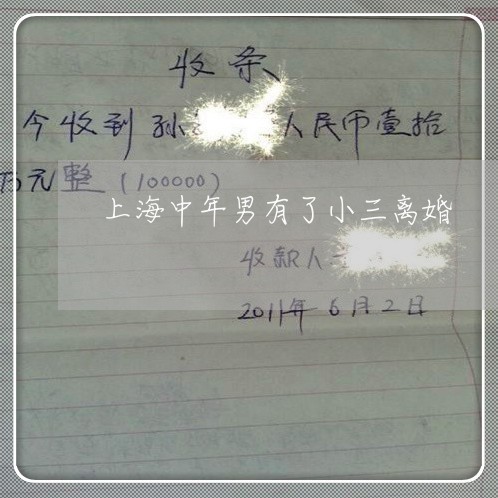 收条
今收到孙 人民币壹拾
万元整(100000)
上海中年男有了小三离婚
收款人
2011年6月2日